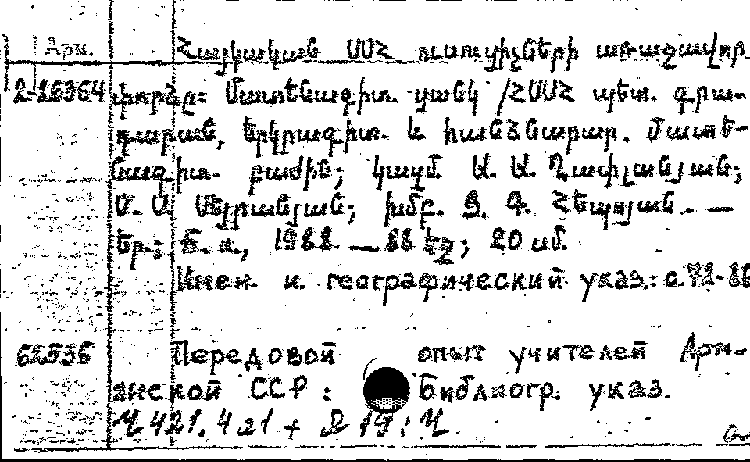 Арм. Հայկական ՍՍՀ ուսուցիչների առաջավոր
2-18364 փորձը: Մատենագիտ. ցանկ /ՀՍՍՀ պետ. գրա-
դարան, երկրագիտ. և հանձնարար. մատե-
նագիտ. բաժին; կազմ. Ա. Ա. Ղափլանյան;
Ս. Մելքանյան; խմբ. Հեպոյան. —
Եր.; Б. и., 1988. — 88 էջ; 20 սմ.
Имен. и географический указ.: с.
62536 Передовой опыт учителей Армя-
анской ССР: Библиогр. указ.
Ч 421.421 +